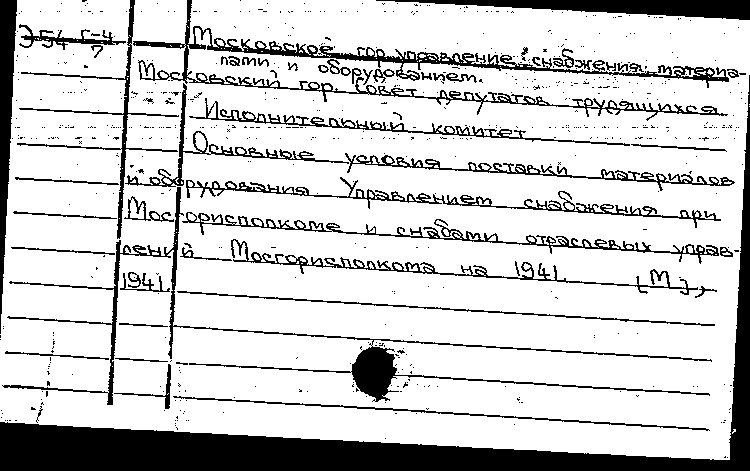 Э54 Г-4
7
Московское гор. управление снабжения материа-
лами и оборудованием.
Московский гор. Совет депутатов трудящихся
Исполнительный комитет.
Основные условия поставки материалов
и оборудования Управлением снабжения при
Мосгорисполкоме и снабами отраслевых управ-
лений Мосгорисполкома на 1941. [М],
1941.